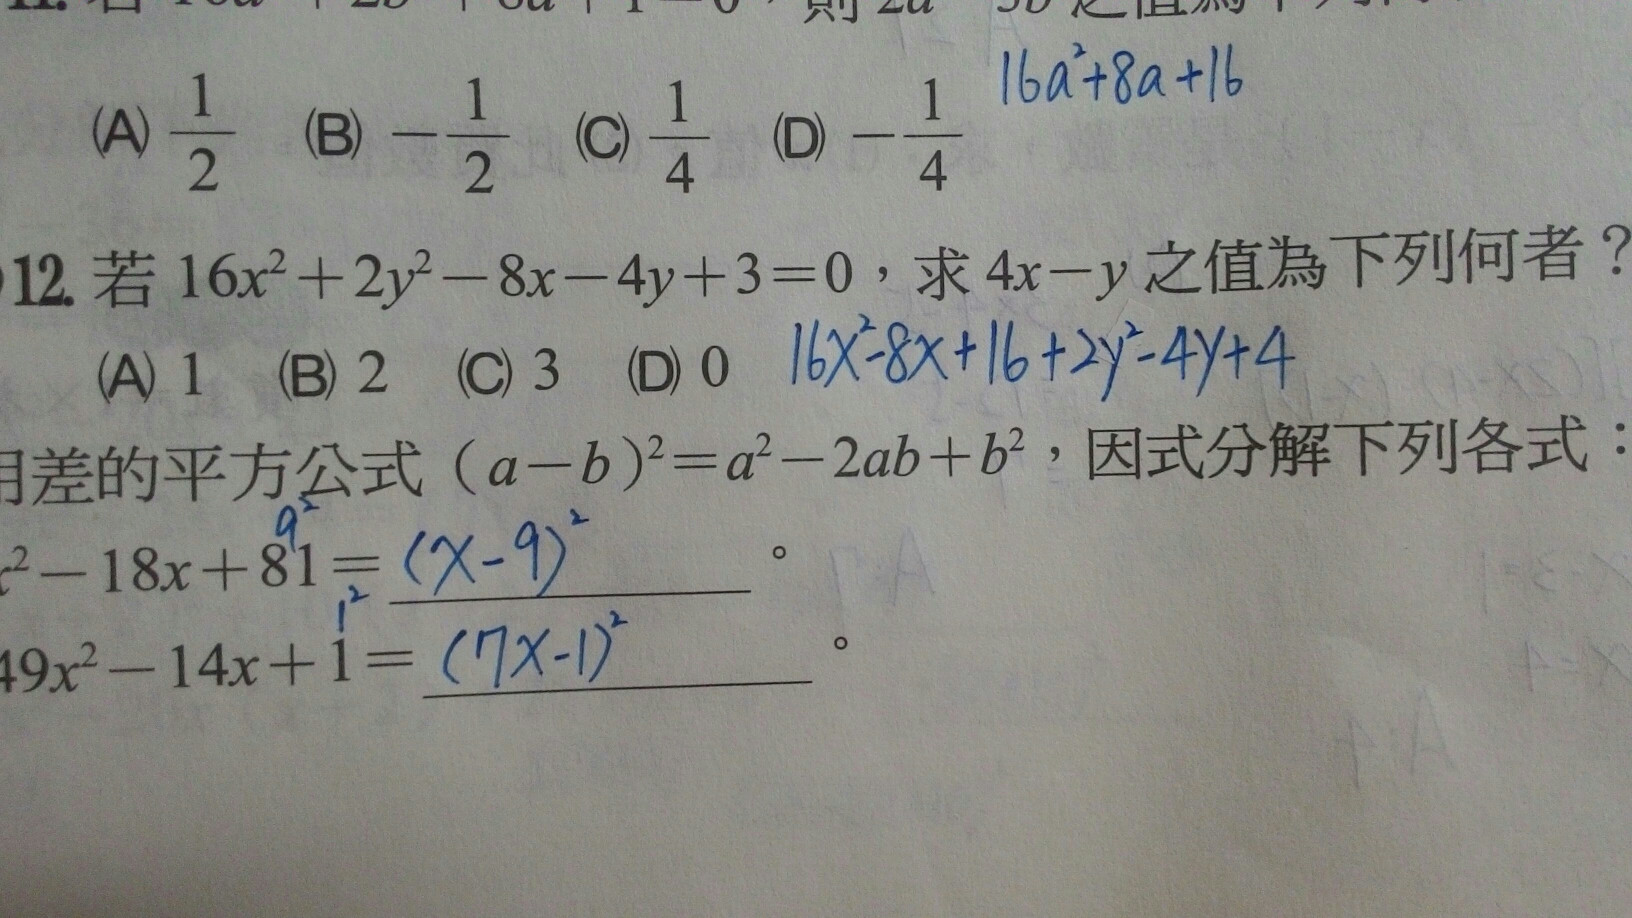 (A) 1/2 (B) −1/2 (C) 1/4 (D) −1/4 16a²+8a+16
12. 若 16x²+2y²−8x−4y+3=0，求 4x−y 之值為下列何者？
(A) 1 (B) 2 (C) 3 (D) 0 16x²-8x+16+2y²-4y+4
差的平方公式（a−b）²=a²−2ab+b²，因式分解下列各式：
9²
²−18x+81= (x-9)² 。
1²
49x²−14x+1= (7x-1)² 。